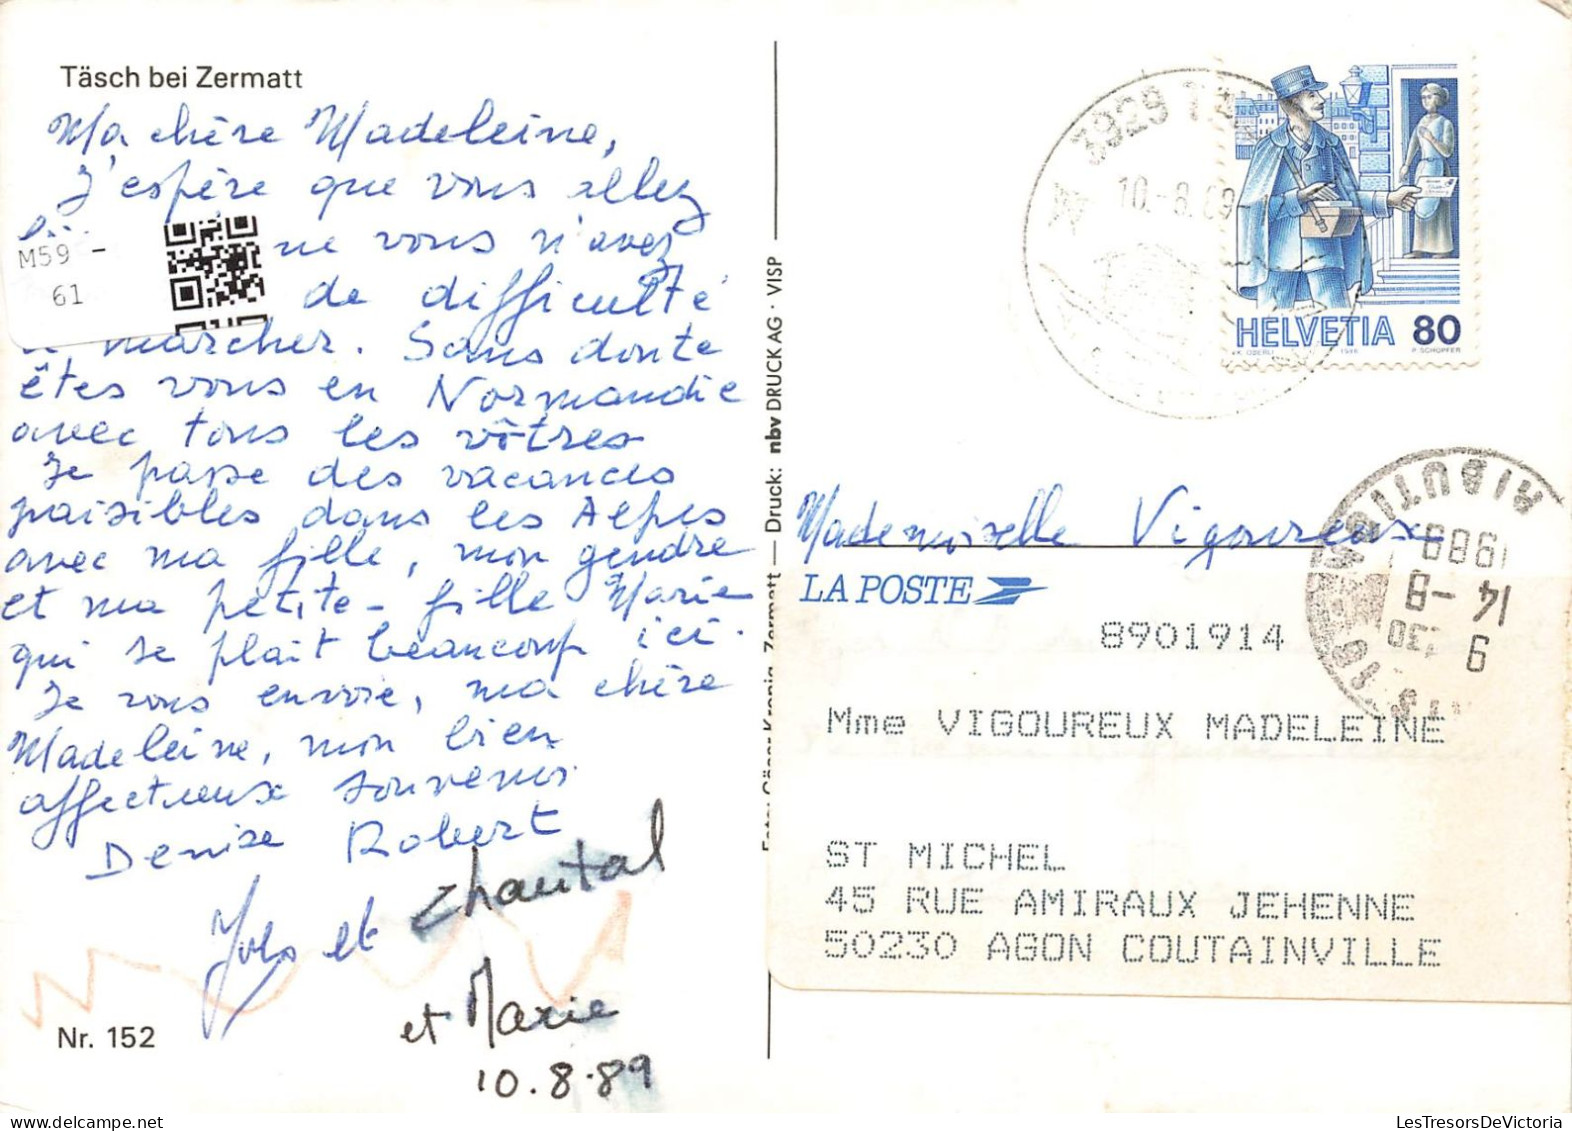 Täsch bei Zermatt
Ma chère Madeleine,
J'espère que vous allez
vous n'avez
de difficulté
à marcher. Sans doute
êtes vous en Normandie
avec tous les vôtres
Je passe des vacances
paisibles dans les Alpes
avec ma fille, mon gendre
et ma petite-fille Marie
qui se plait beaucoup ici.
Je vous envoie, ma chère
Madeleine, mon bien
affectueux souvenir
Denise Robert
Yves et Chantal
et Marie
10.8.89
Nr. 152
M59 -
61
nbv DRUCK AG · VISP
Druck:
3929
10.-8.89
HELVETIA 80
K. OBERLI
P. SCHOPFER
Mademoiselle Vigoureux
1989
14 -8
LA POSTE
8901914
Mme VIGOUREUX MADELEINE
ST MICHEL
45 RUE AMIRAUX JEHENNE
50230 AGON COUTAINVILLE
LesTresorsDeVictoria.com